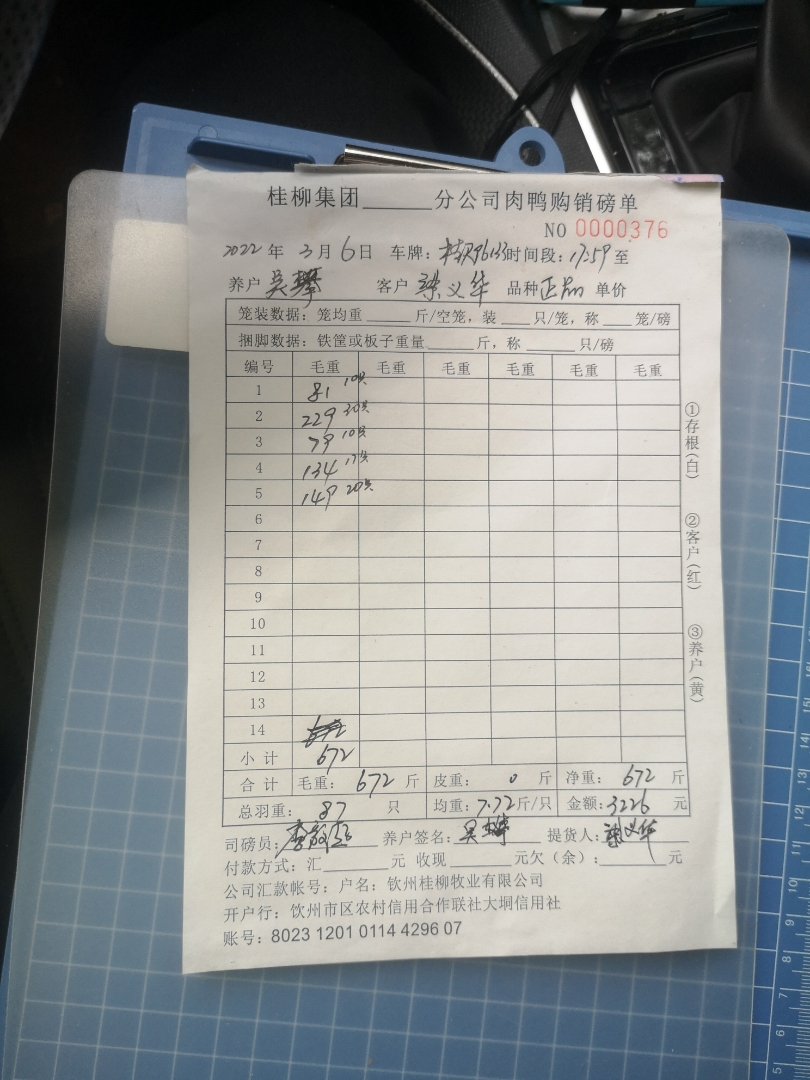 桂柳集团______分公司肉鸭购销磅单
NO 0000376
2022 年 3 月 6 日 车牌: 时间段: 17:59 至
养户 吴攀 客户 梁义华 品种 正品 单价
笼装数据: 笼均重______斤/空笼, 装____只/笼, 称____笼/磅
捆脚数据: 铁筐或板子重量______斤, 称______只/磅
编号 毛重 毛重 毛重 毛重 毛重 毛重
1 81 10只
2 229 30只
3 79 10只
4 134 17只
5 149 20只
6
7
8
9
10
11
12
13
14 672
小计 672
合计 毛重: 672 斤 皮重: 0 斤 净重: 672 斤
总羽重: 87 只 均重: 7.72斤/只 金额: 3226 元
司磅员: 养户签名: 吴攀 提货人: 梁义华
付款方式: 汇______元 收现______元欠(余):______元
公司汇款帐号: 户名: 钦州桂柳牧业有限公司
开户行: 钦州市区农村信用合作联社大垌信用社
账号: 8023 1201 0114 4296 07
①存根(白)
②客户(红)
③养户(黄)
15
14
13
12
11
10
9
8
7
6
5